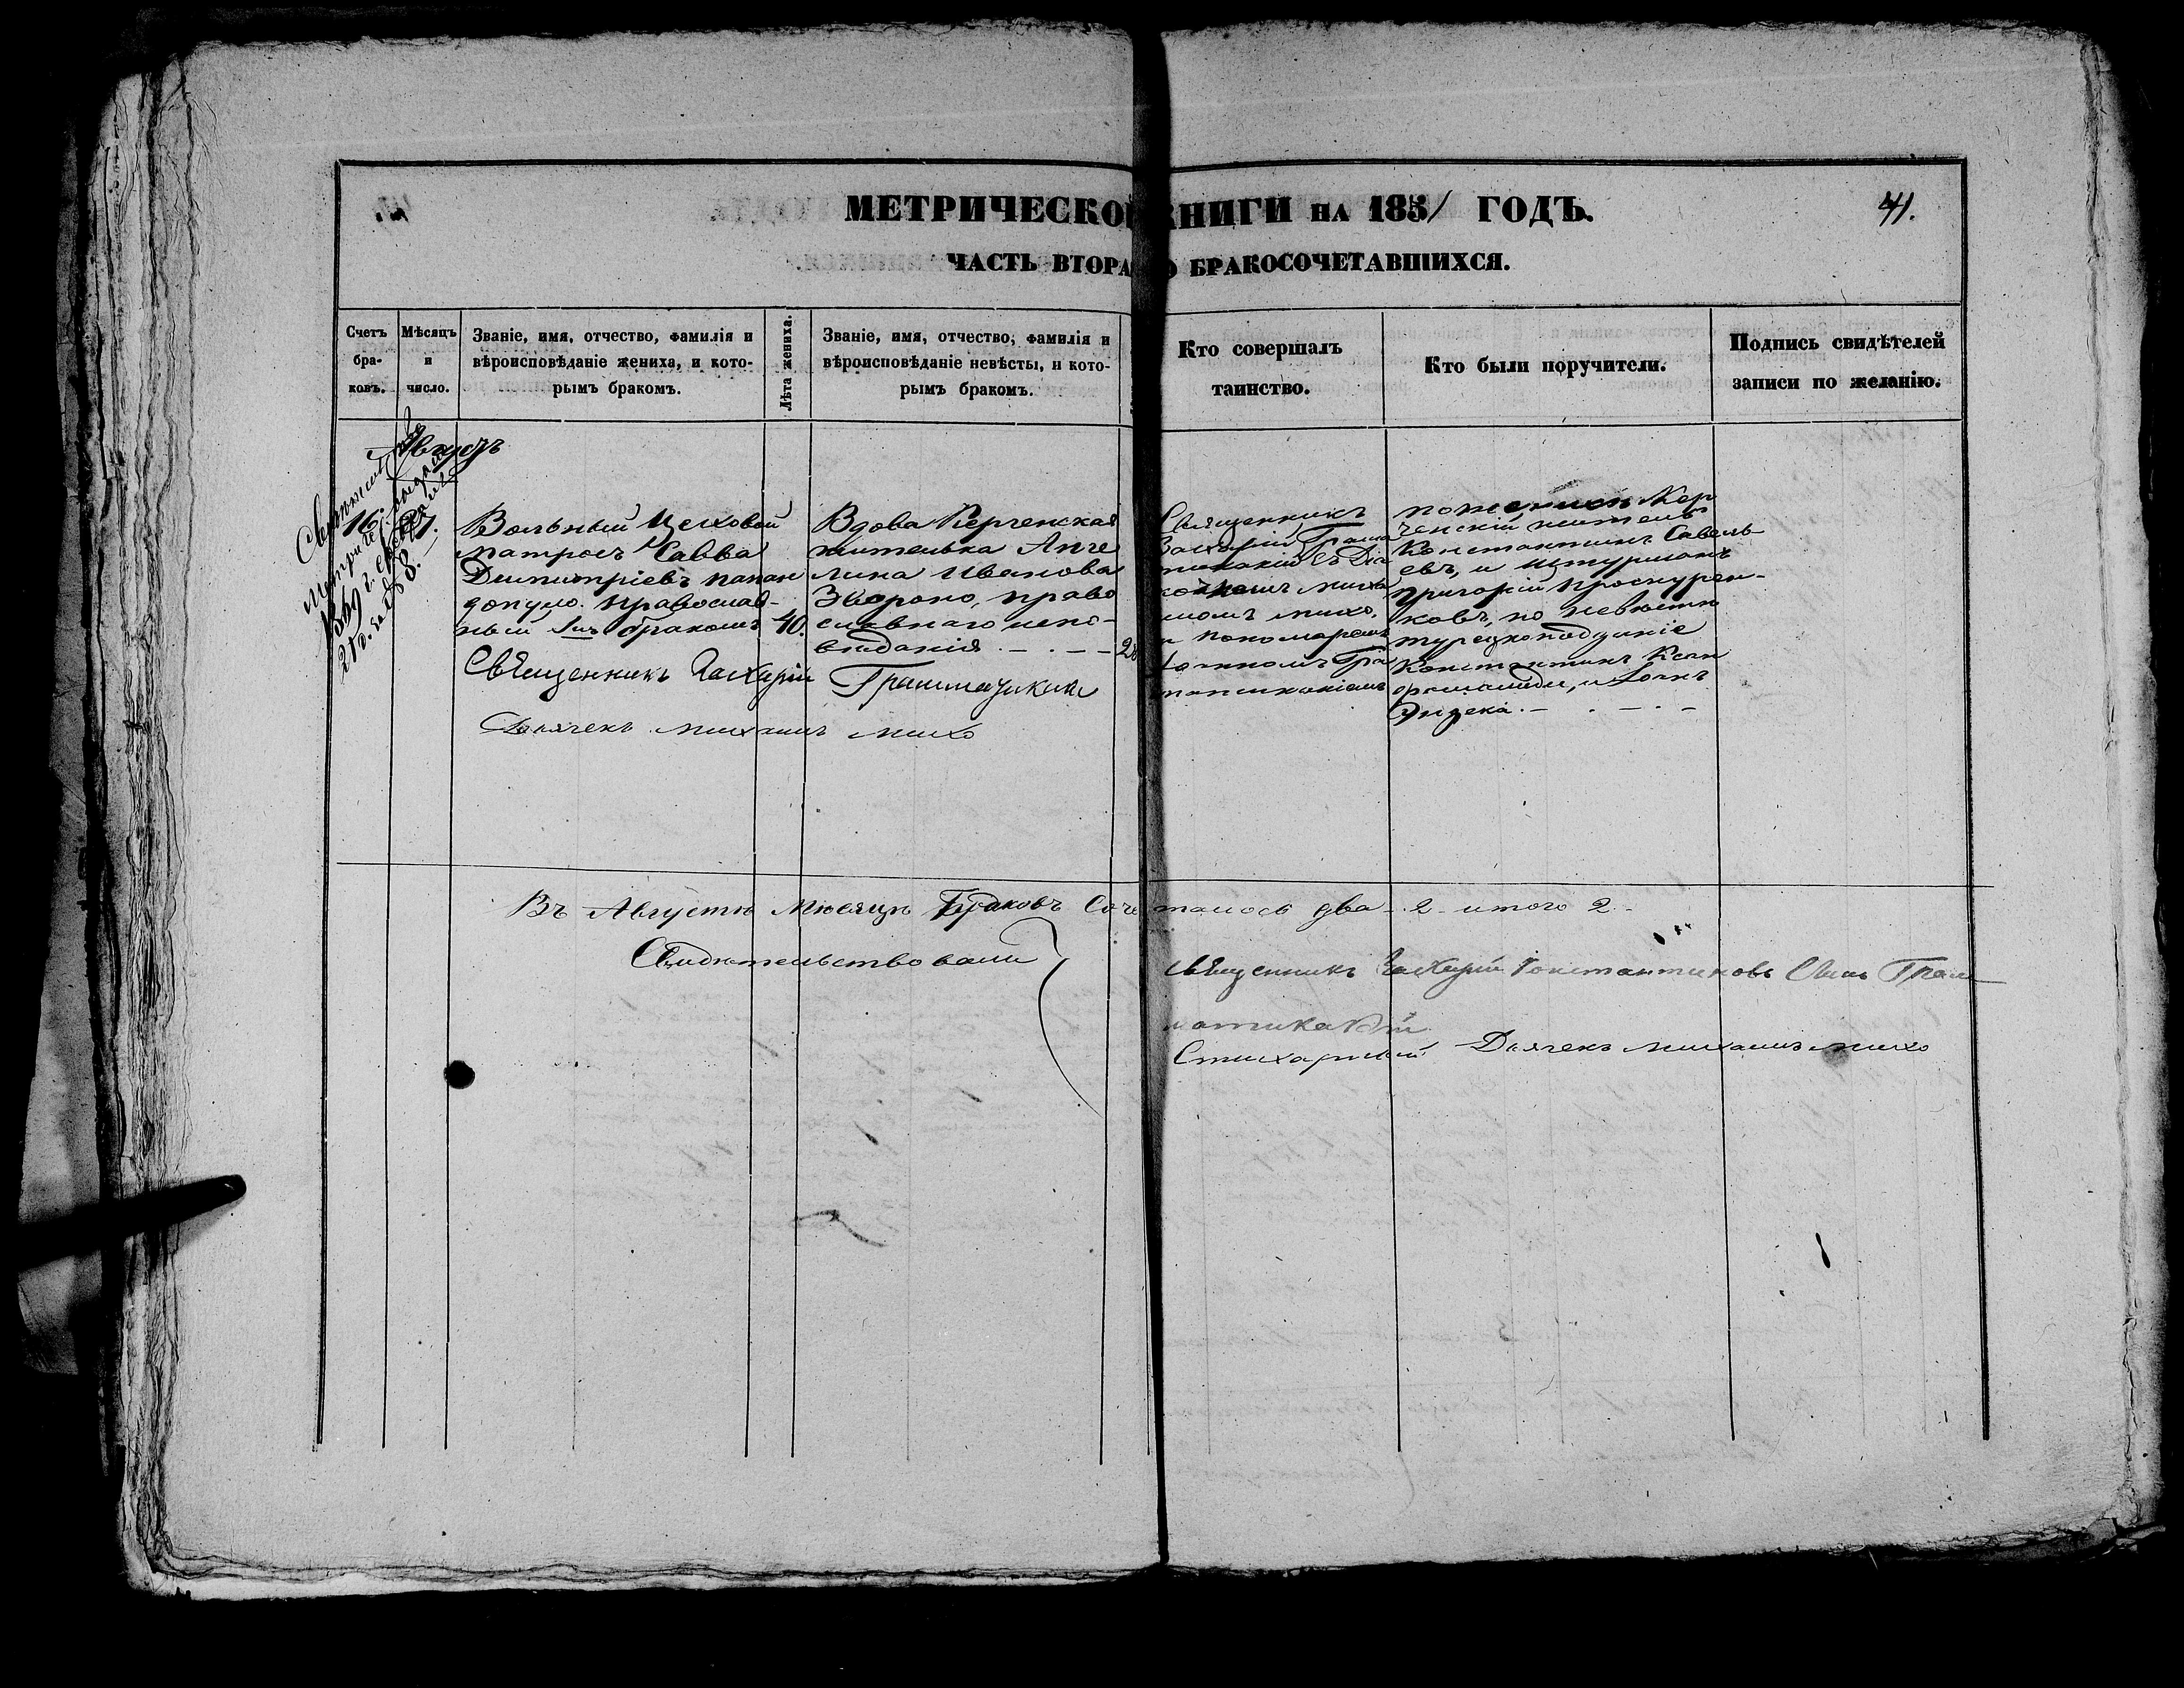 МЕТРИЧЕСКОЙ КНИГИ НА 1851 ГОДЪ.
41.
ЧАСТЬ ВТОРА О БРАКОСОЧЕТАВШИХСЯ.
Счетъ бра-ковъ.
Мѣсяцъ и число.
Званіе, имя, отчество, фамилія и
вѣроисповѣданіе жениха, и кото-
рымъ бракомъ.
Лѣта жениха.
Званіе, имя, отчество, фамилія и
вѣроисповѣданіе невѣсты, и кото-
рымъ бракомъ.
Кто совершалъ
таинство.
Кто были поручители.
Подпись свидѣтелей
записи по желанію.
Августъ
16.
27.
Вольный Цеховой
матросъ Савва
Димитріевъ папан
допуло. православ-
ный 1мъ бракомъ
40.
Вдова Керченская
жителька Анге
лина Иванова
православнаго испо-
вѣданія
Священникъ
Захарій Грамма
тикакій съ Дья
михо,
и пономаремъ
по женихѣ Кер
ченскій житель
Константинъ Савель-
евъ, и штурманъ
Григорій Проскурен-
ковъ, по невѣстѣ
турецкоподданіе
Константинъ
Священникъ Захарій Грамматикаки
Дьячекъ михаилъ михо
Въ Августѣ Мѣсяцѣ Браковъ Соче талось два - 2 - итого 2 -
Свидѣтельствовали
священникъ Захарій Константиновъ Сынъ Грам
матикакій
Стихарный Дьячекъ михаилъ михо